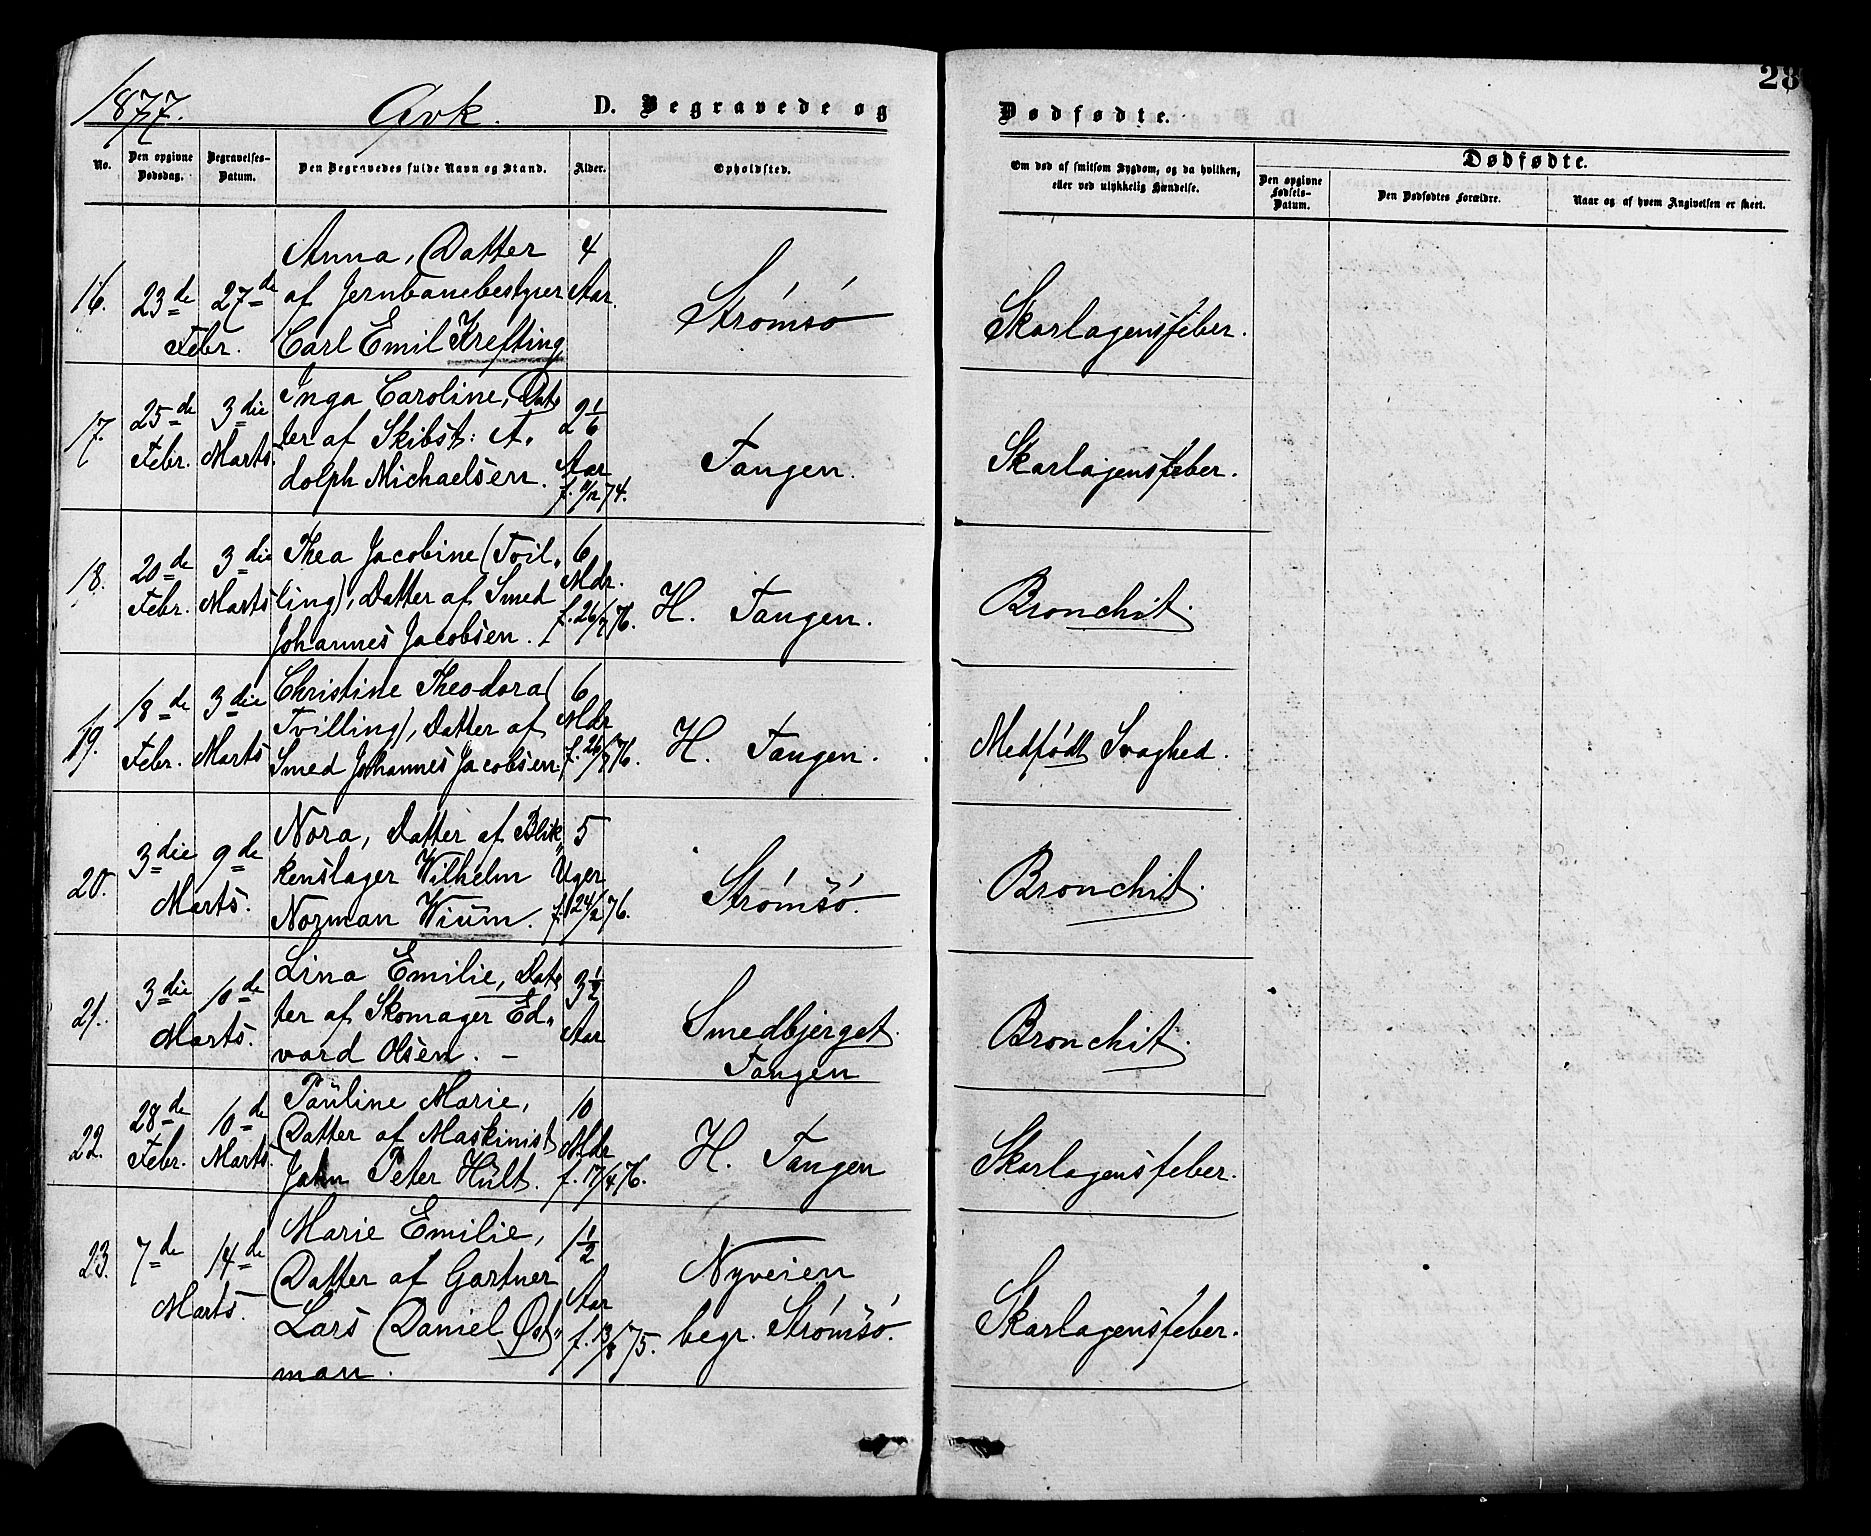 1877. Qvk. D. Begravede og
Dødfødte.
28
No. Den opgivne Dødsdag. Begravelses-Datum. Den Begravedes fulde Navn og Stand. Alder. Opholdsted.
Om død af smitsom Sygdom, og da hvilken, eller ved ulykkelig Hændelse.
Dødfødte.
Den opgivne Fødsels-Datum. Den Dødfødtes Forældre. Naar og af hvem Angivelsen er skeet.
16. 23de 27de Febr.
Anna, Datter
af Jernbanebestyrer
Carl Emil Krefting
4 Aar.
Strømsø
Skarlagensfeber.
17. 25de Febr. 3die Marts.
Inga Caroline, Dat-
ter af Skibst: A-
dolph Michaelsen.
2 1/6 Aar
Tangen.
Skarlagensfeber.
18. 20de Febr. 3die Marts
Thea Jacobine (Tvil-
ling), Datter af Smed
Johannes Jacobsen.
6 Mdr. f. 26/7 76.
H. Tangen.
Bronchit.
19. 18de Febr. 3die Marts
Christine Theodora (
Tvilling), Datter af
Smed Johannes Jacobsen
6 Mdr f. 26/7 76.
H. Tangen.
Medfødt Svaghed.
20. 3die 9de Marts.
Nora, Datter af Blik-
kenslager Wilhelm
Norman Wium.
5 Uger
Strømsø.
Bronchit.
21. 3die 10de Marts.
Lina Emilie, Dat-
ter af Skomager Ed-
vard Olsen. –
Aar
Smedbjerget.
Tangen
Bronchit.
22. 28de Febr. 10de Marts.
Pauline Marie,
Datter af Maskinist
John Peter Hult.
10 Mdr f. 17/4 76.
H. Tangen
Skarlagensfeber.
23. 7de 14de Marts.
Marie Emilie,
Datter af Gartner
Lars Daniel Øst-
man.
1 1/2 Aar f. 13/8 75.
Nyveien
begr. Strømsø.
Skarlagensfeber.